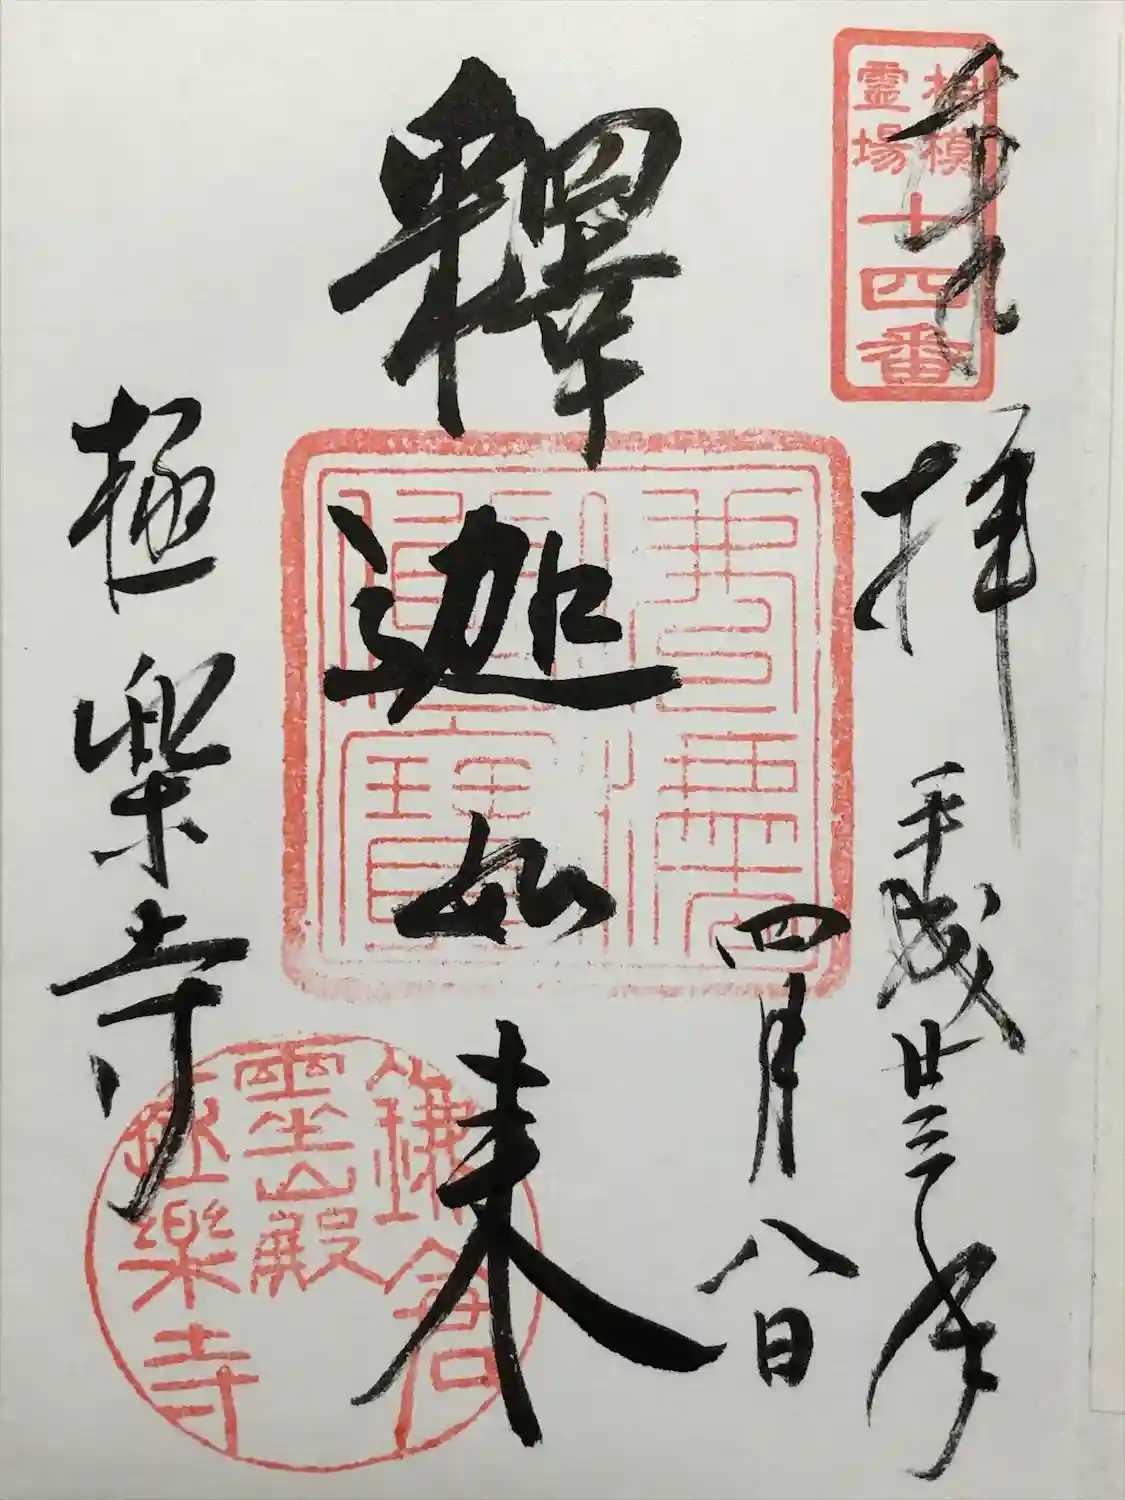 相模
霊場
十四番
奉拝
平成廿三年
四月八日
釋迦如来
極樂寺
鎌倉
靈山殿
極樂寺